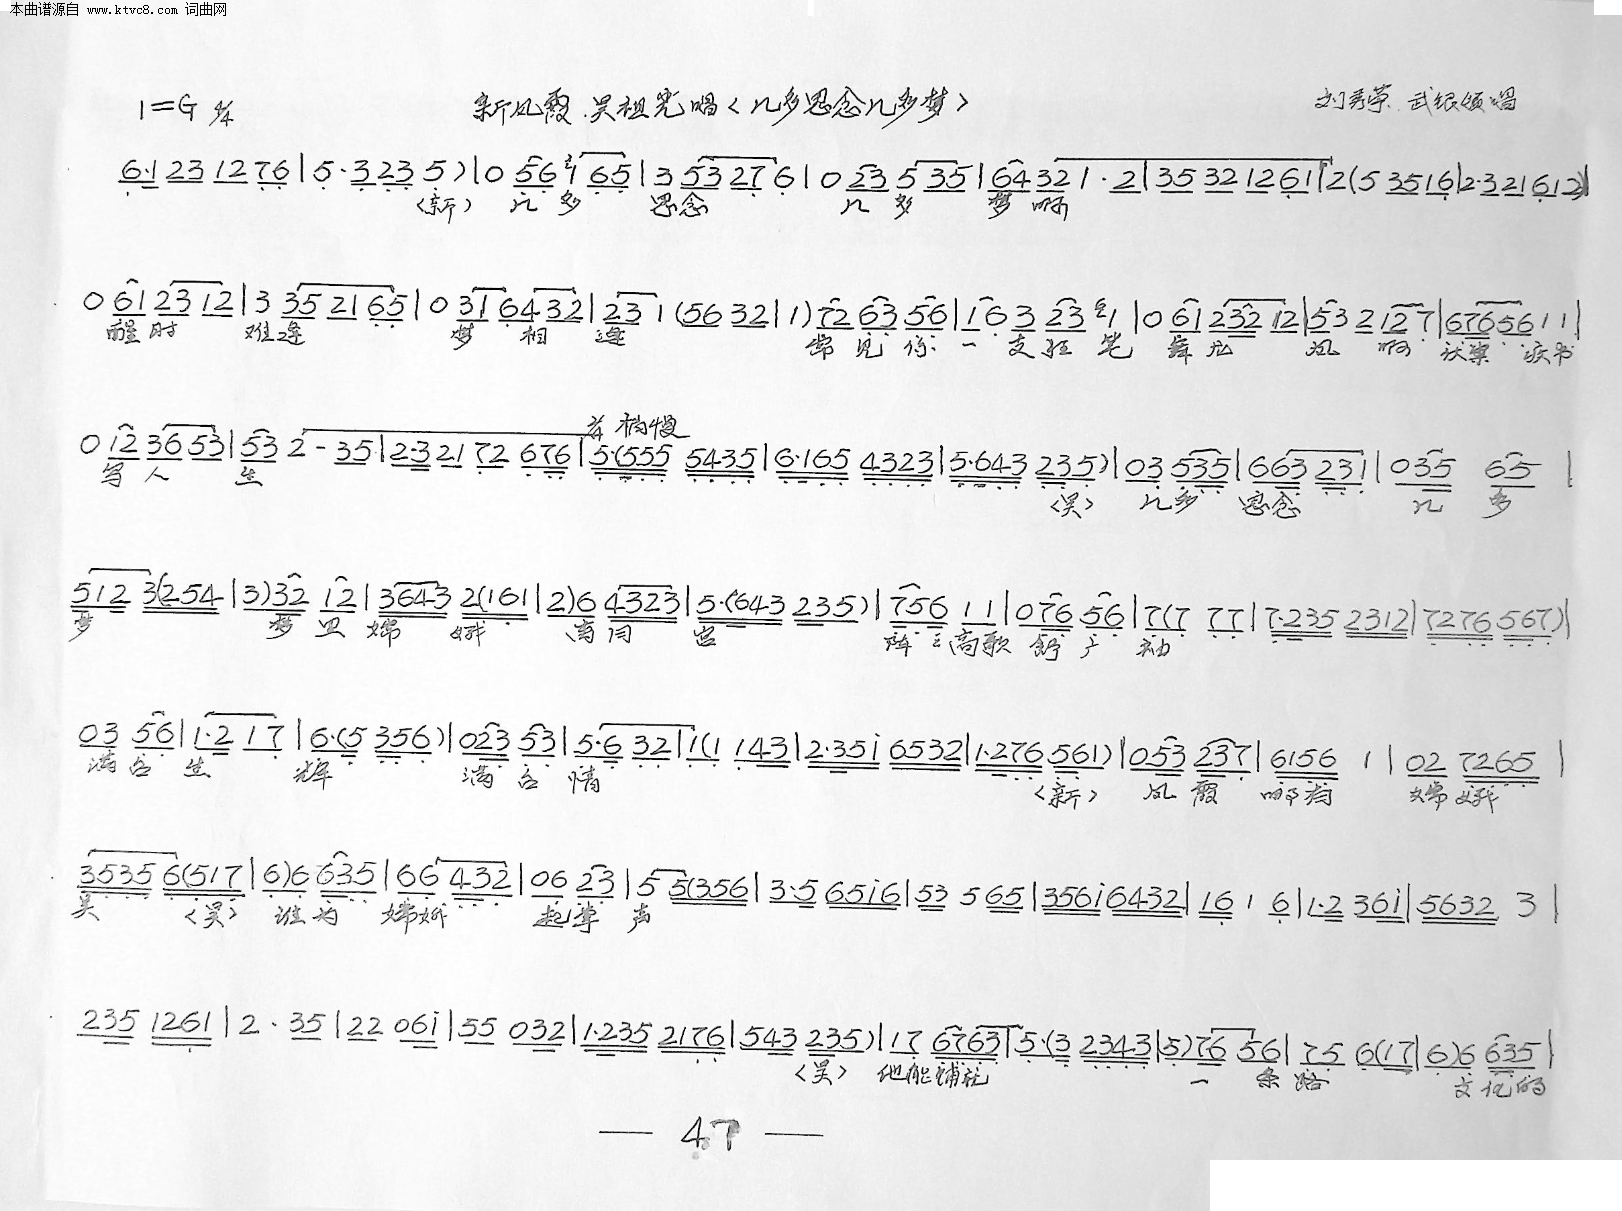 本曲谱源自 www.ktvc8.com 词曲网
1=G 2/4 新凤霞.吴祖光唱〈几多思念几多梦〉 刘秀荣.武银 唱
6·1 23 12 76 | 5·3 23 5 ) | 0 56 65 | 3 53 27 6 | 0 23 5 35 | 64 32 1·2 | 35 32 12 61 | 2 (5 35 16 | 2·3 21 61 2) |
〈新〉 几 多 思念 几 多 梦 啊
0 61 23 12 | 3 35 21 65 | 0 31 64 32 | 23 1 (56 32 | 1) 72 63 56 | 16 3 23 1 | 0 61 232 12 | 53 2 12 7 | 676 56 1 1 |
醒时 难逢 梦 相 逢 常 见 你 一 支 狂 笔 舞 龙 凤 啊 伏案 疾书
0 12 36 53 | 53 2 - 35 | 2·3 21 72 676 | 5·(555 5435 | 6·165 4323 | 5·643 235) | 03 535 | 663 231 | 035 65 |
写 人 生 慢 〈吴〉 几多 思念 几 多
512 3(254 | 3)32 12 | 3643 2(161 | 2)6 4323 | 5·(643 235) | 756 1 1 | 076 56 | 7(7 77 | 7·235 2312 | 7276 567) |
梦 梦 里 嫦 娥 离 月 宫 阵阵高歌 舒 广 袖
03 56 | 1·2 17 | 6·(5 356) | 023 53 | 5·6 32 | 1(1 143 | 2·35i 6532 | 1·276 561) | 053 237 | 6156 1 | 02 7265 |
满台 生 辉 满 台 情 〈新〉 凤 霞 哪有 嫦 娥
3535 6(517 | 6)6 635 | 66 432 | 06 23 | 5 5(356 | 3·5 65i6 | 53 5 65 | 356i 6432 | 16 1 6 | 1·2 36i | 5632 3 |
美 〈吴〉 谁为 嫦娥 起掌 声
235 1261 | 2·35 | 22 06i | 55 032 | 1·235 2176 | 543 235) | 17 6763 | 5·(3 2343 | 5)76 56 | 75 6(17 | 6)6 635 |
〈吴〉 他能铺就 一 条 路
— 47 —